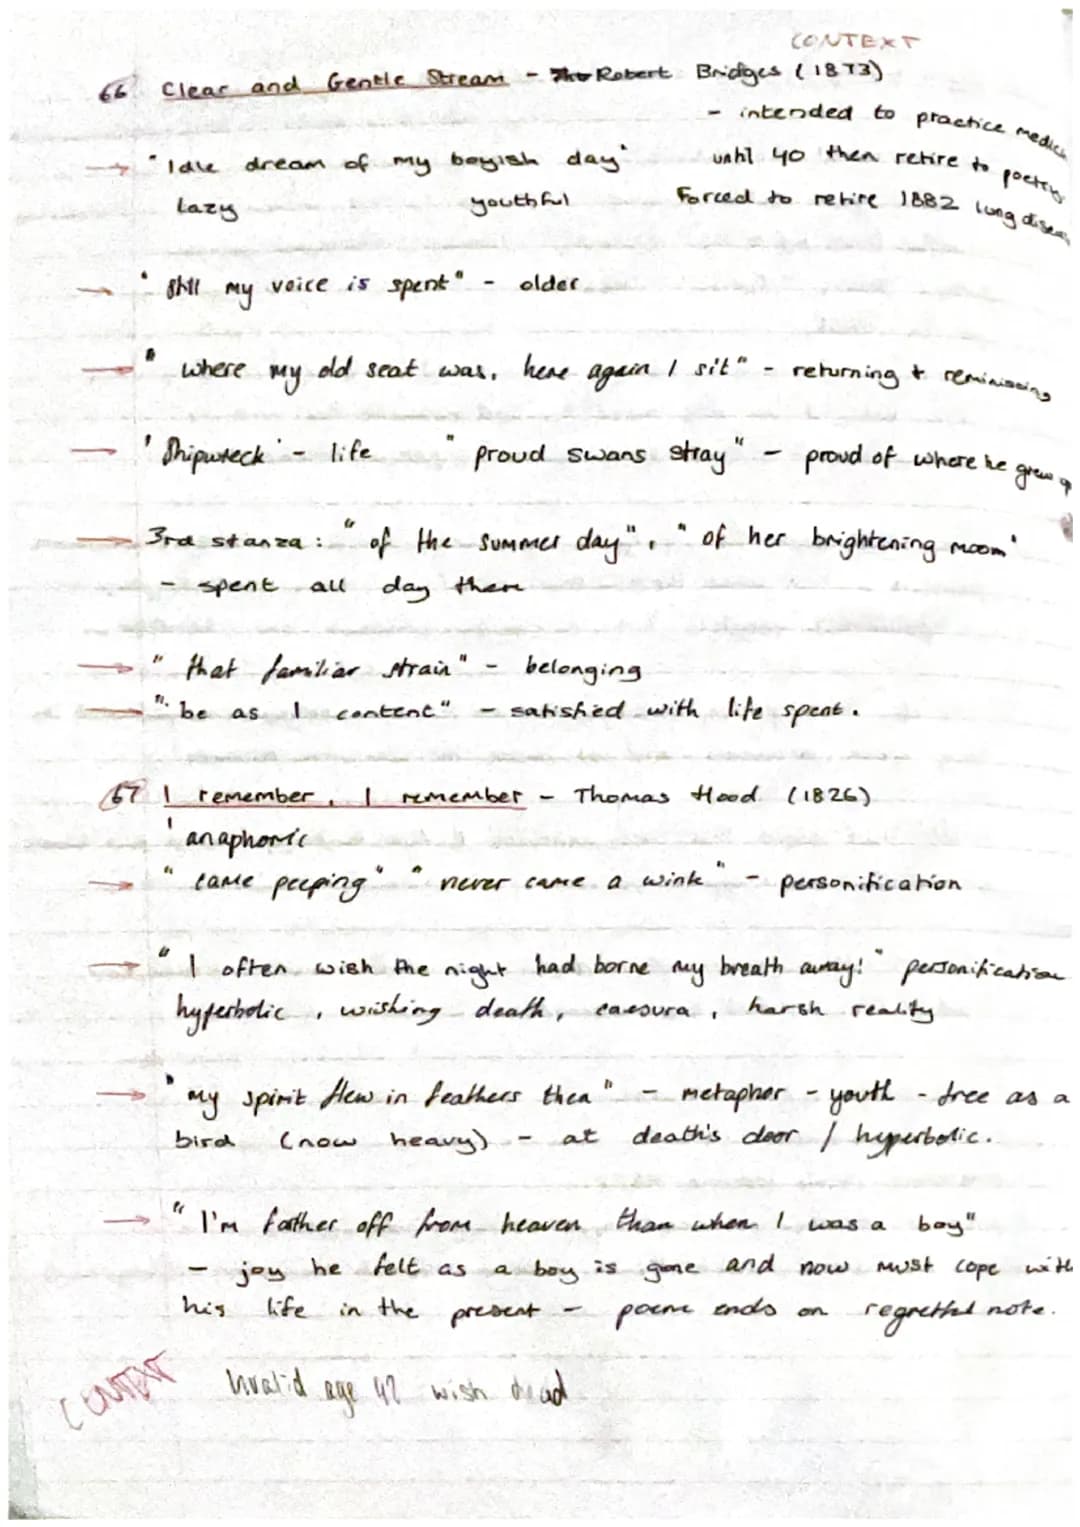 CONTEXT
66 Clear and Gentle Stream - Robert Bridges (1873)
- intended to practice medici
→ "Idle dream of my boyish day" until 40 then retire to poetry
Lazy youthful Forced to retire 1882 lung diseas
→ "Still my voice is spent" - older
→ " where my old seat was, here again I sit" - returning + reminiscing
→ 'Shipwreck' - life "proud swans stray" - proud of where he grew up
→ 3rd stanza: "of the summer day", "of her brightening moon"
- spent all day there
→ "that familiar strain" - belonging
→ "be as I content" - satisfied with life spent.
67 I remember, I remember - Thomas Hood (1826)
' anaphoric
→ "came peeping" "never came a wink" - personification
→ "I often wish the night had borne my breath away!" personification
hyperbolic, wishing death, caesura, harsh reality
→ "my spirit flew in feathers then" - metaphor - youth - free as a
bird (now heavy) - at death's door / hyperbolic.
→ "I'm farther off from heaven than when I was a boy"
- joy he felt as a boy is gone and now must cope with
his life in the present - poem ends on regretful note.
CONTEXT Invalid age 42 wish dead